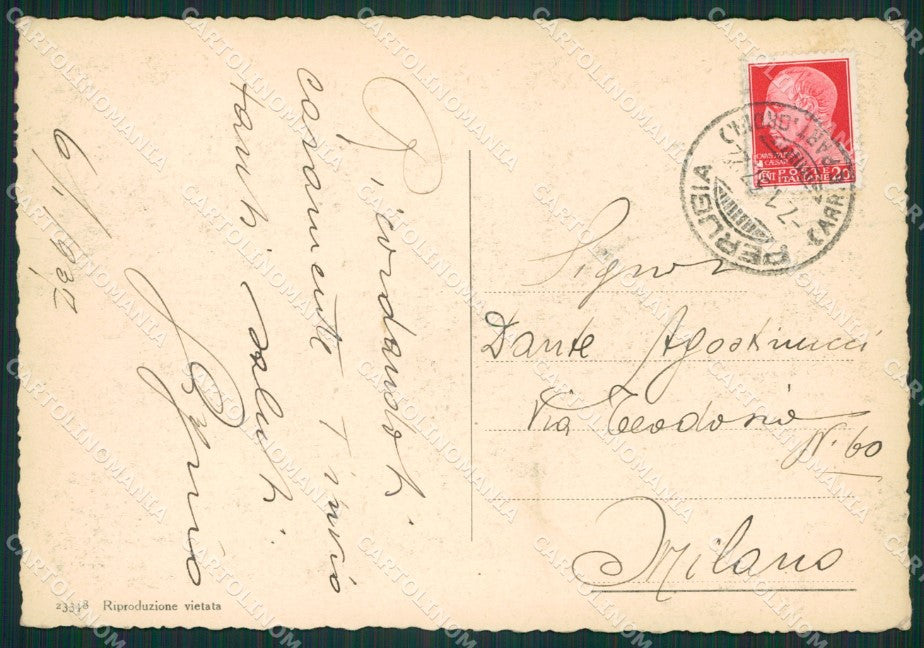 6/1/932
Ricordandoti
caramente t'invio
tanti saluti.
Signor
Dante Agostinucci
Via Teodosio
N. 60
Milano
PERUGIA
CENT POSTE 20
ITALIANE
23348 Riproduzione vietata
CARTOLINOMANIA